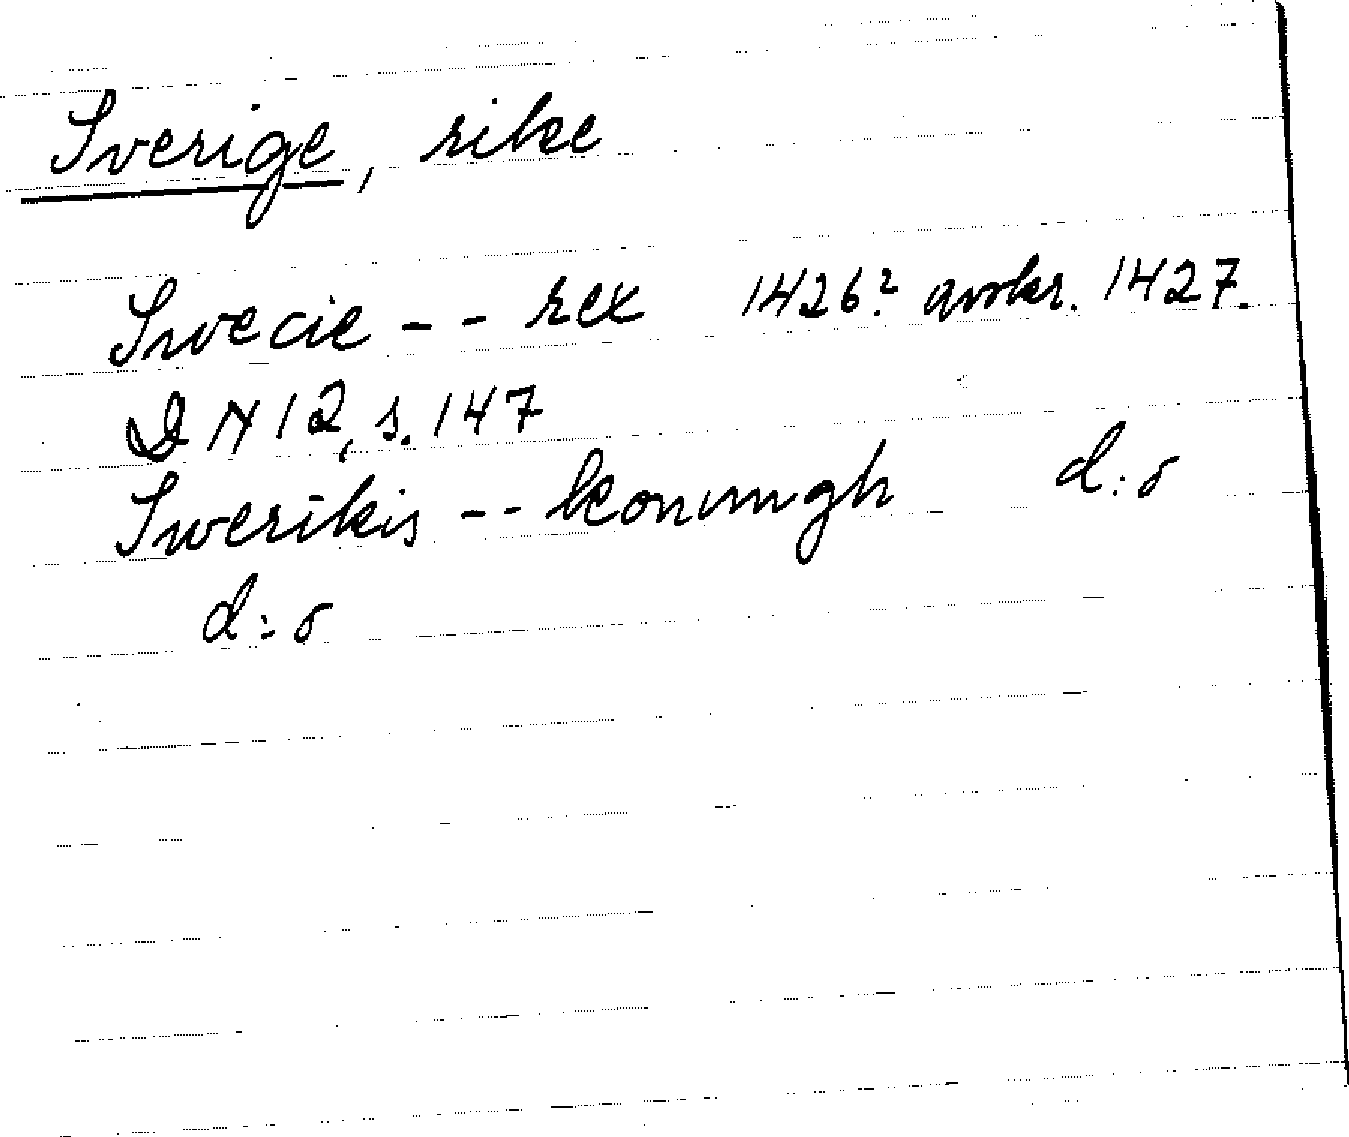 Sverige, rike
Swecie -- rex 1426? avskr. 1427.
DN 12, s. 147
Swerikis -- konungh d:o
d:o